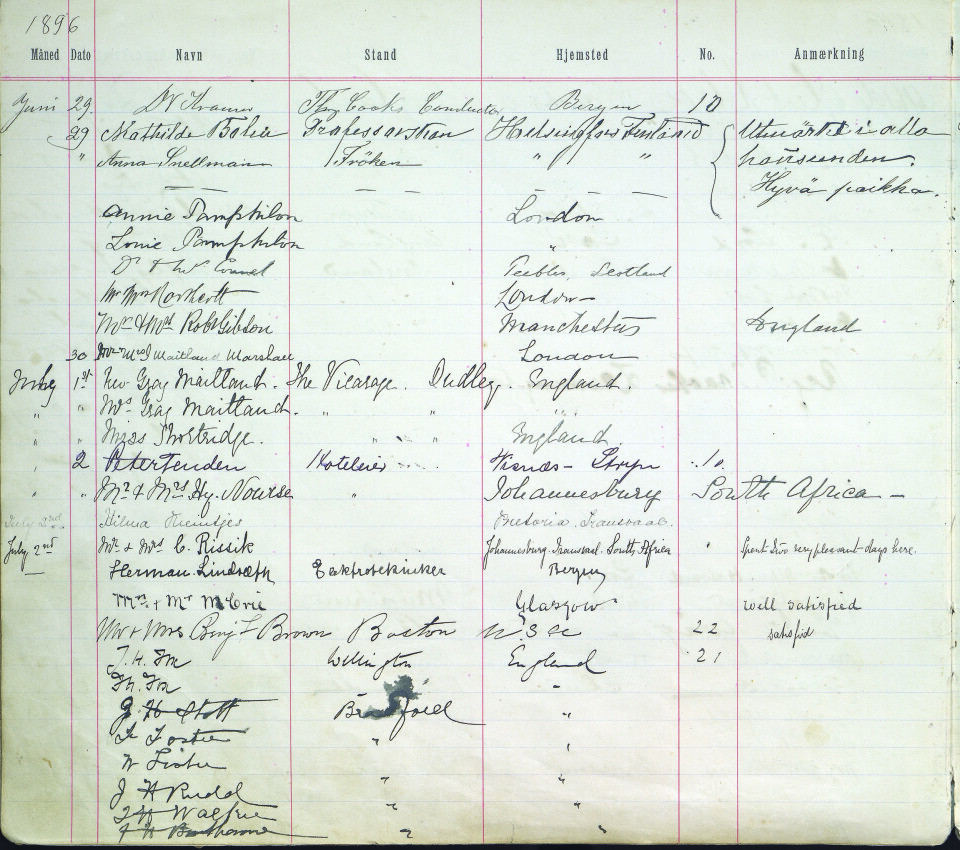 1896
Måned Dato Navn Stand Hjemsted No. Anmærkning
Juni 29. Dr Kramer Thos Cooks Conductor Bergen 10
29 Mathilde Professorskan Helsingfors Finland Utmärkt i alla
" Anna Snellman Fröken " " hänseenden.
— — — — — Hyvä paikka.
Annie Pamphilon London
Louie Pamphilon "
Dr & Mrs Peebles, Scotland
Mr Mrs London
Mr & Mrs Robt Gibson Manchester England
30 Mr Mrs Maitland Marshall London
July 1st Rev Gray Maitland. The Vicarage. Dudley. England.
" " Mrs Gray Maitland. " "
" " Miss Shortridge. " " England.
" 2 Peter Tenden Hoteleier Visnæs – Stryn 10
" " Mr & Mrs Hy. Nourse " Johannesburg South Africa –
July 2nd Hilma Pretoria. Transvaal.
July 2nd Mr & Mrs C. Rissik Johannesburg. Transvaal. South Africa " Spent two very pleasant days here.
— Herman Lindseth Bergen
Mrs & Mr McCrie Glasgow well satisfied
Mr & Mrs Benj F Brown Boston U.S.A 22 satisfid
J. H. Wellington England 21
"
J H Stott Bradford "
Foster " "
W Lister
J H Rudd " "
" "
" "